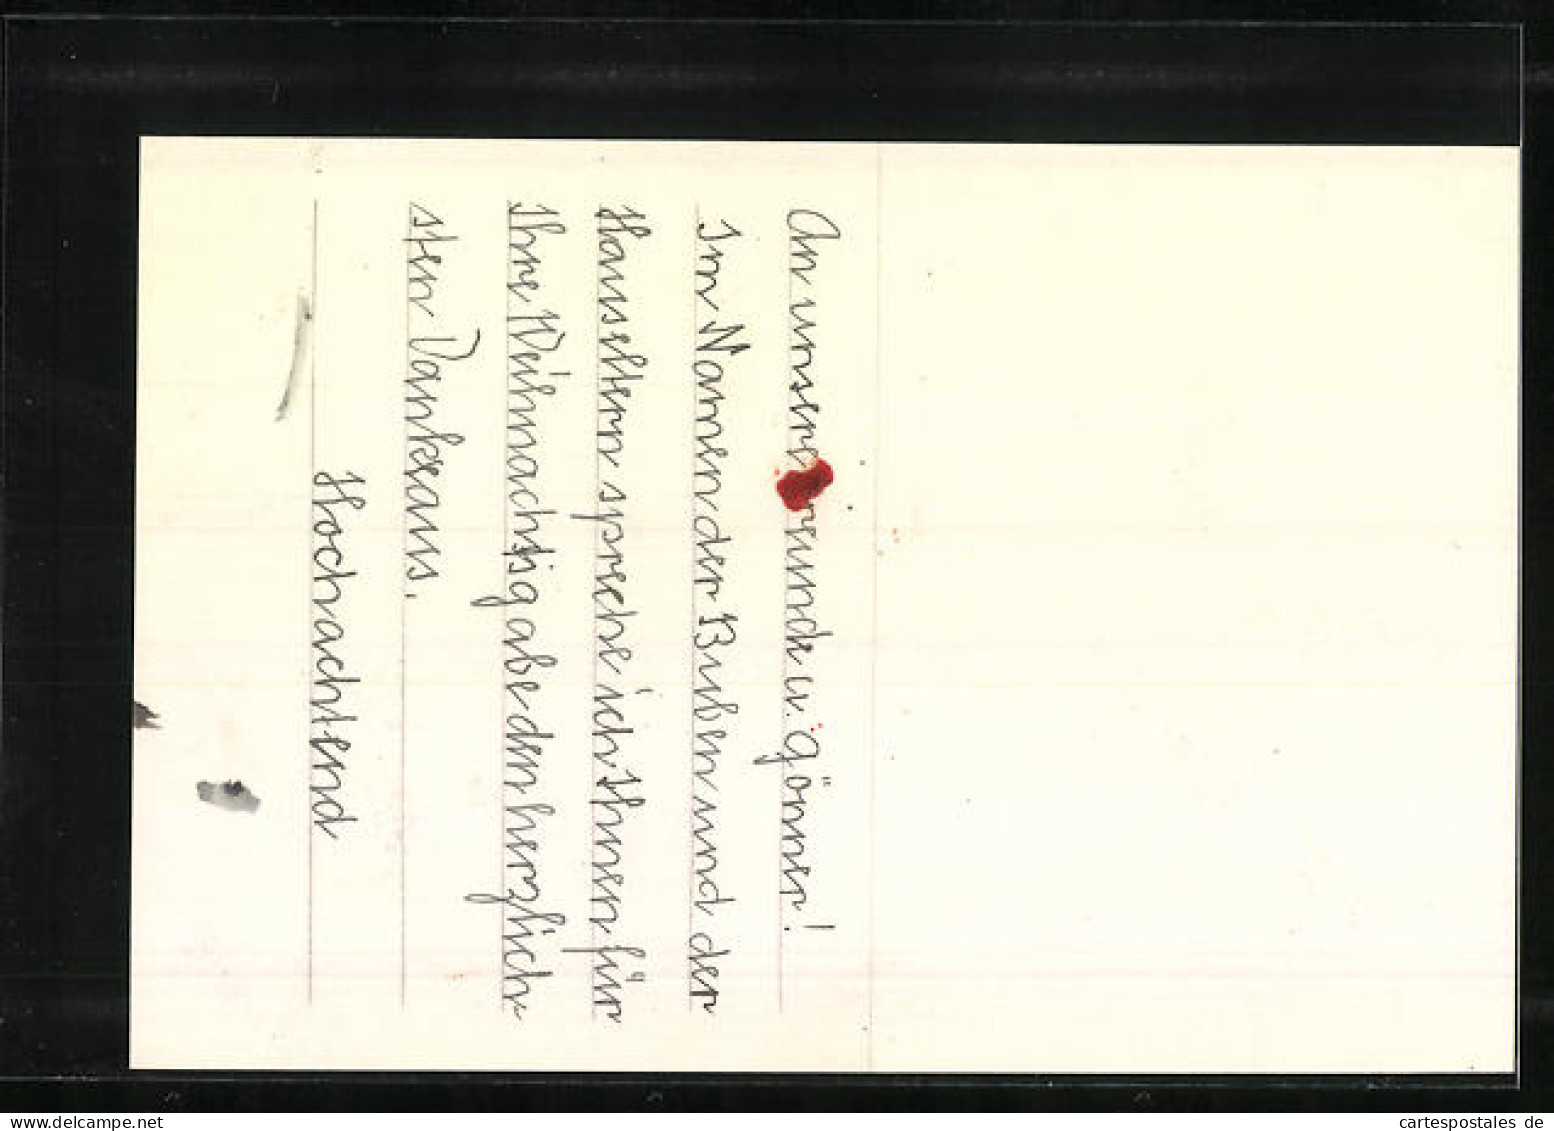 An unsere reunde u. Gönner!
Im Namen der Buben und der
Hauseltern spreche ich Ihnen für
Ihre Weihnachtsgabe den herzlich
sten Dank aus.
Hochachtend
www.delcampe.net
cartespostales de